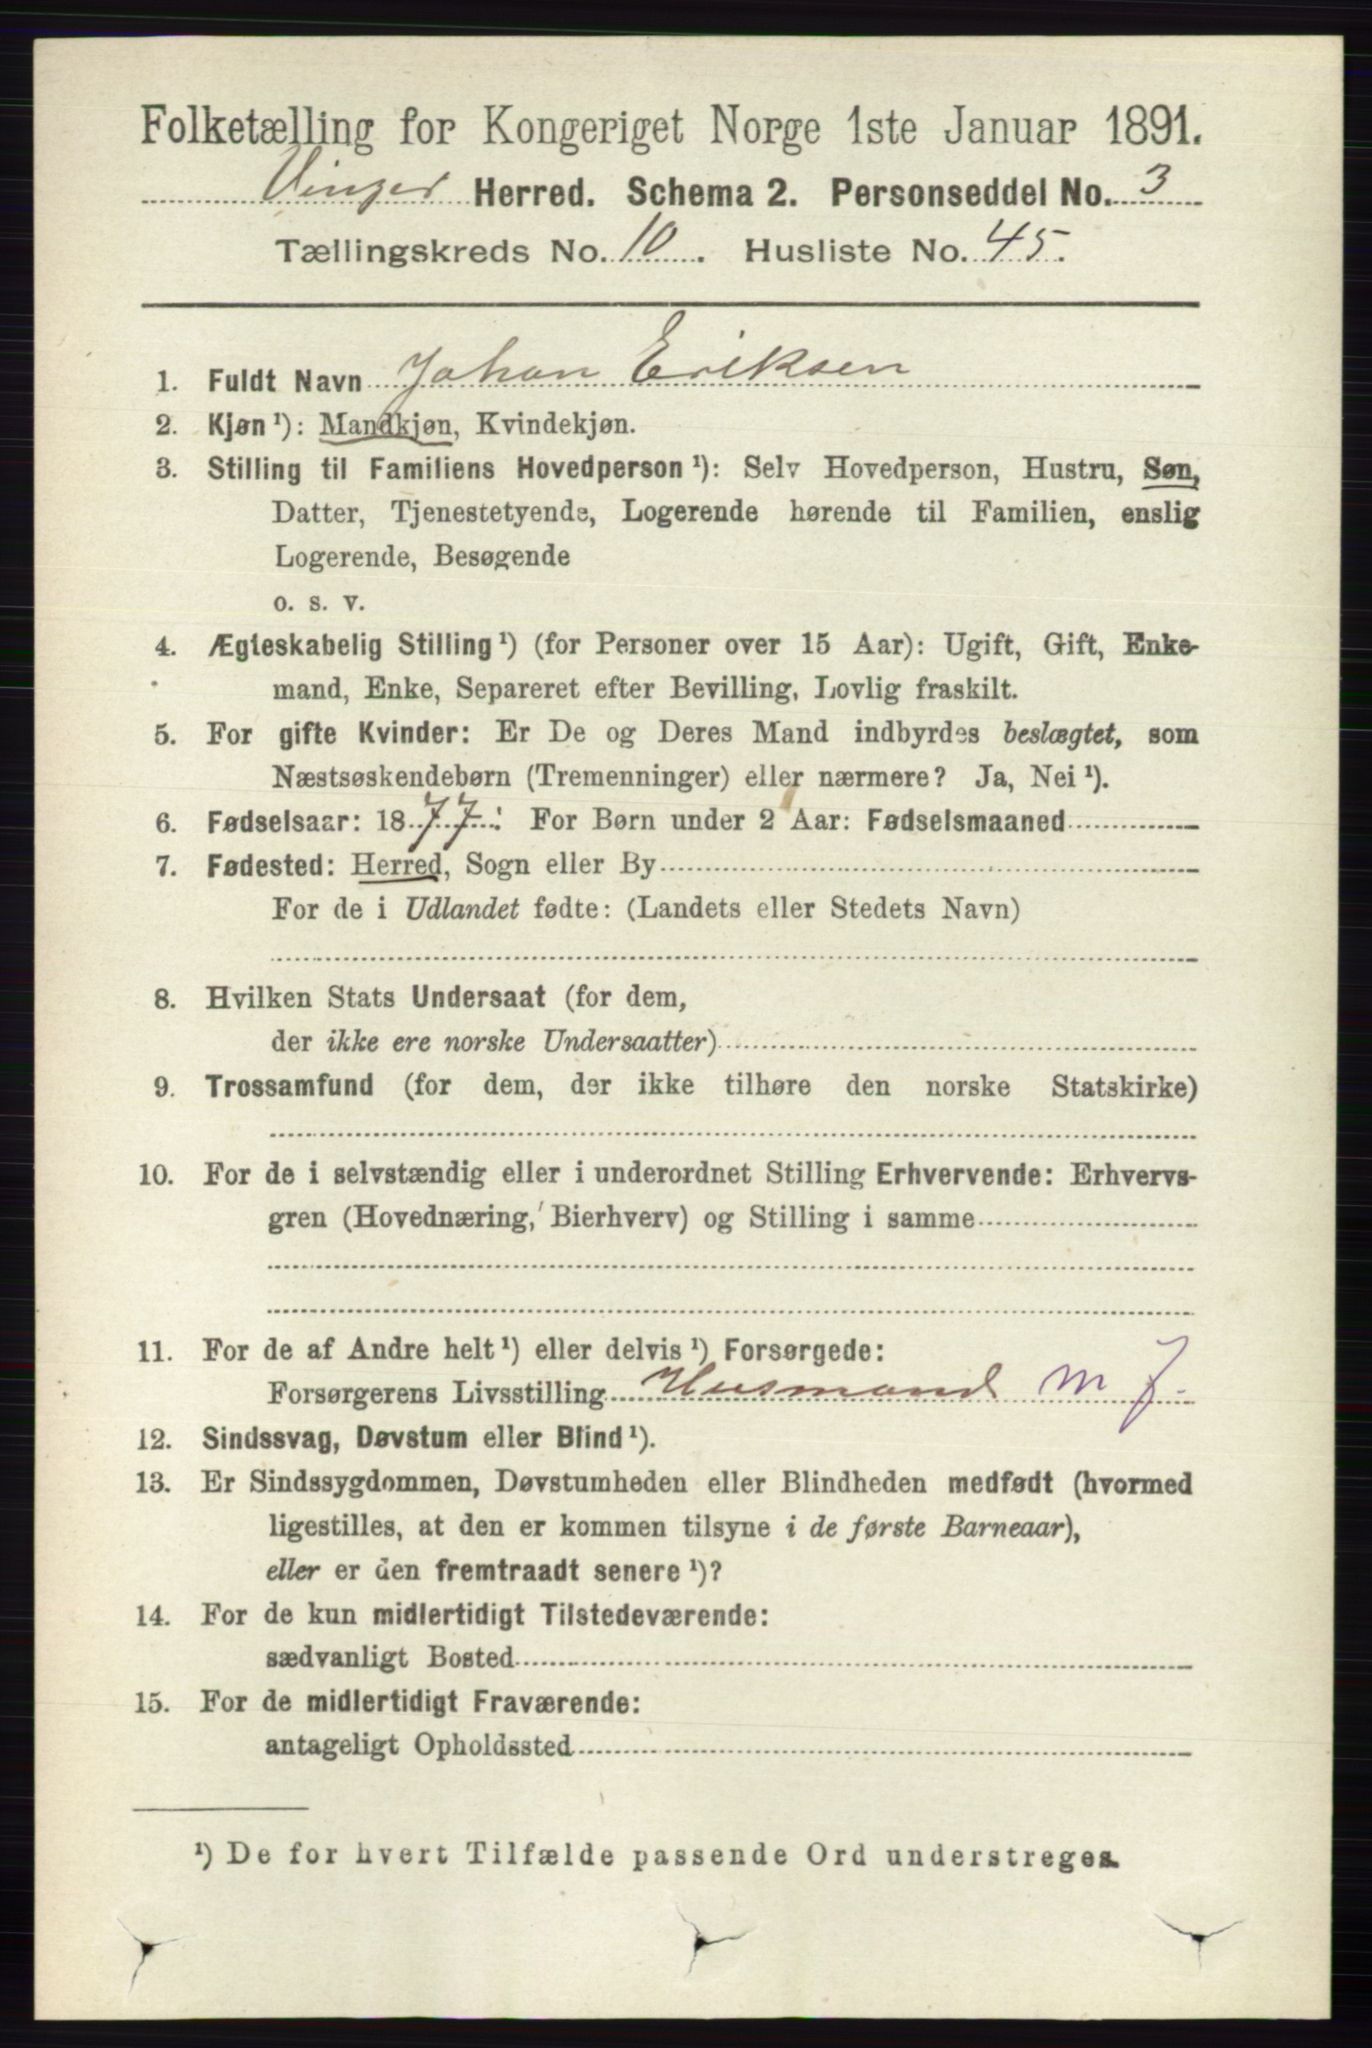 Folketælling for Kongeriget Norge 1ste Januar 1891.
Vinger Herred. Schema 2. Personseddel No. 3
Tællingskreds No. 10. Husliste No. 45.
1. Fuldt Navn Johan Eriksen
2. Kjøn ¹): Mandkjøn, Kvindekjøn.
3. Stilling til Familiens Hovedperson ¹): Selv Hovedperson, Hustru, Søn,
Datter, Tjenestetyende, Logerende hørende til Familien, enslig
Logerende, Besøgende
o. s. v.
4. Ægteskabelig Stilling ¹) (for Personer over 15 Aar): Ugift, Gift, Enke-
mand, Enke, Separeret efter Bevilling, Lovlig fraskilt.
5. For gifte Kvinder: Er De og Deres Mand indbyrdes beslægtet, som
Næstsøskendebørn (Tremenninger) eller nærmere? Ja, Nei ¹).
6. Fødselsaar: 1877. For Børn under 2 Aar: Fødselsmaaned
7. Fødested: Herred, Sogn eller By
For de i Udlandet fødte: (Landets eller Stedets Navn)
8. Hvilken Stats Undersaat (for dem,
der ikke ere norske Undersaatter)
9. Trossamfund (for dem, der ikke tilhøre den norske Statskirke)
10. For de i selvstændig eller i underordnet Stilling Erhvervende: Erhvervs-
gren (Hovednæring, Bierhverv) og Stilling i samme
11. For de af Andre helt ¹) eller delvis ¹) Forsørgede:
Forsørgerens Livsstilling Husmand m J.
12. Sindssvag, Døvstum eller Blind ¹).
13. Er Sindssygdommen, Døvstumheden eller Blindheden medfødt (hvormed
ligestilles, at den er kommen tilsyne i de første Barneaar),
eller er den fremtraadt senere ¹)?
14. For de kun midlertidigt Tilstedeværende:
sædvanligt Bosted
15. For de midlertidigt Fraværende:
antageligt Opholdssted
¹) De for hvert Tilfælde passende Ord understreges.